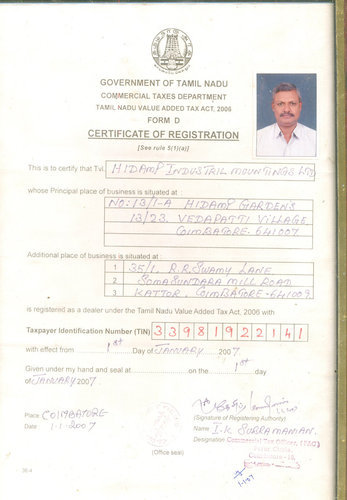 GOVERNMENT OF TAMIL NADU
COMMERCIAL TAXES DEPARTMENT
TAMIL NADU VALUE ADDED TAX ACT, 2006
FORM D
CERTIFICATE OF REGISTRATION
[See rule 5(1)(a)]
This is to certify that Tvl. HIDAMP INDUSTRIL MOUNTINGS LTD
whose Principal place of business is situated at
NO: 13/1-A HIDAMP GARDENS
13/23. VEDAPATTI VILLAGE
COIMBATORE - 641007
Additional place of business is situated at
1 3E/1, R.R. SWAMY LANE
2 SOMASUNDARA MILL ROAD
3 KATTOR, COIMBATORE-641009
is registered as a dealer under the Tamil Nadu Value Added Tax Act, 2006 with
Taxpayer Identification Number (TIN) 33981922141
with effect from 1st Day of JANUARY 2007
Given under my hand and seal at on the 1st day
of JANUARY 2007.
Place: COIMBATORE
(Signature of Registering Authority)
Date 1.1.2007
Name I.K. SUBRAMANIAN.
Designation Commercial Tax Officer,
(Office seal)